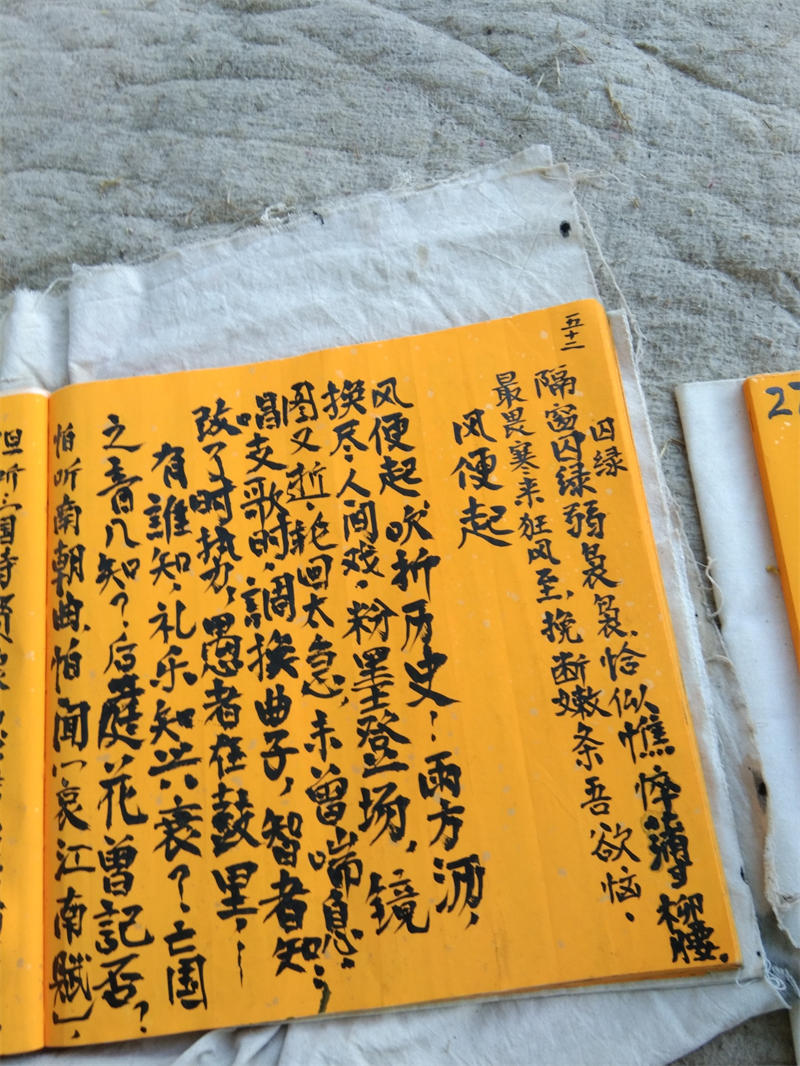 五十二
囚绿
隔窗囚绿弱袅袅,恰似憔悴薄柳腰。
最畏寒来狂风至,挽断嫩条吾欲恼。
风便起
风便起吹折历史:雨方洒,
换尽人间戏。粉墨登场,镜
图又逝,轮回太急,未曾喘息。
唱支歌时,調换曲子,智者知;
改了时执力,愚者在鼓里;
有誰知,礼乐知兴衰?亡国
之音几知?后庭花曾記否?
怕听南朝曲,怕闻“哀江南赋”,
27